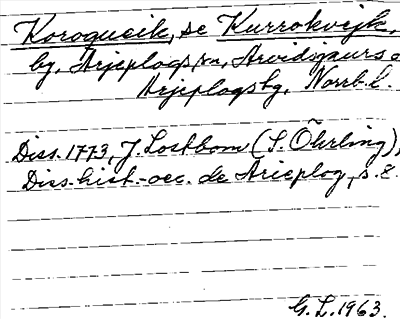 Koroqueik, se Kurrokvejk,
by, Arjeplogs sn, Arvidsjaurs o
Arjeplogs tg, Norrb.l.
Diss. 1773, J. Lostbom (S. Öhrling),
Diss. hist.-oec. de Arieplog, s. 8
G.L. 1963.